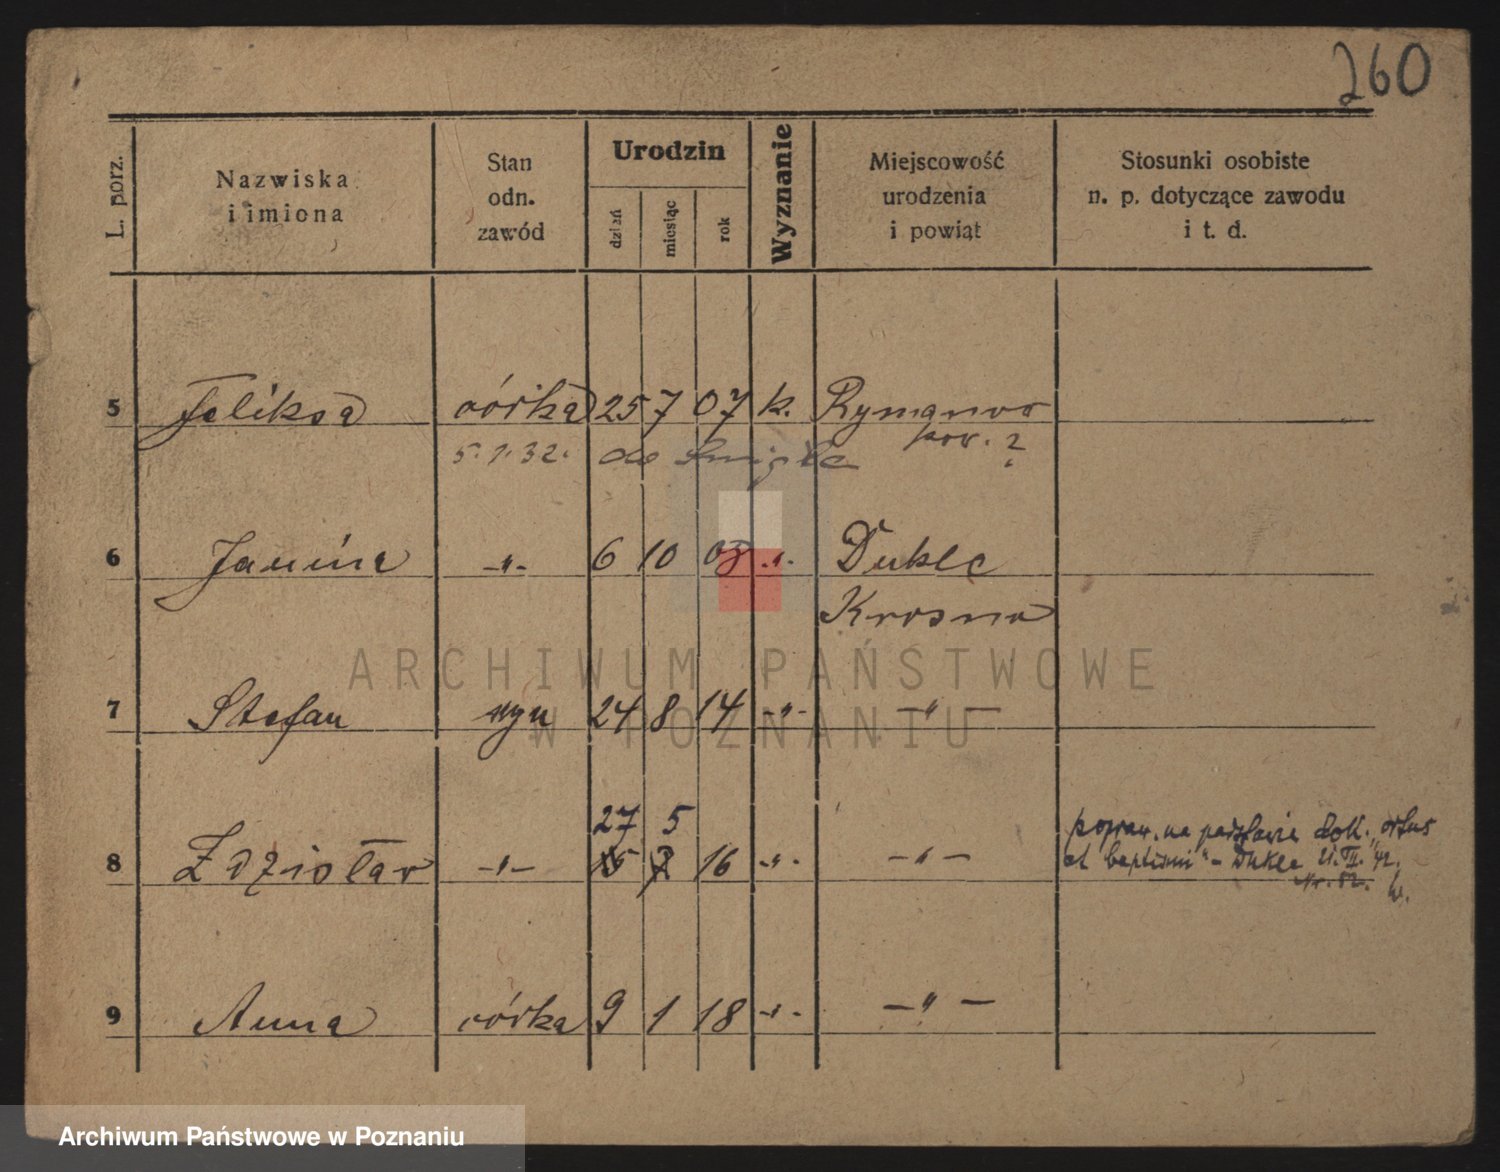 260
L. porz.
Nazwiska
i imiona
Stan
odn.
zawód
Urodzin
dzień
miesiąc
rok
Wyznanie
Miejscowość
urodzenia
i powiąt
Stosunki osobiste
n. p. dotyczące zawodu
i t. d.
5 Feliksa córka 25 7 07 k. Rymanow
pow. ?
5.1.32. do Śmigla
6 Janina -"- 6 10 08 -"- Dukla
Krosno
7 Stefan syn 24 8 14 -"- -"-
27 5
8 Zdzisław -"- 15 2 16 -"- -"-
popraw. na podstawie dok. „ortus
et baptismi" - Dukla 21.VII.42.
Nr. 52.
9 Anna córka 9 1 18 -"- -"-
ARCHIWUM PAŃSTWOWE
W POZNANIU
Archiwum Państwowe w Poznaniu